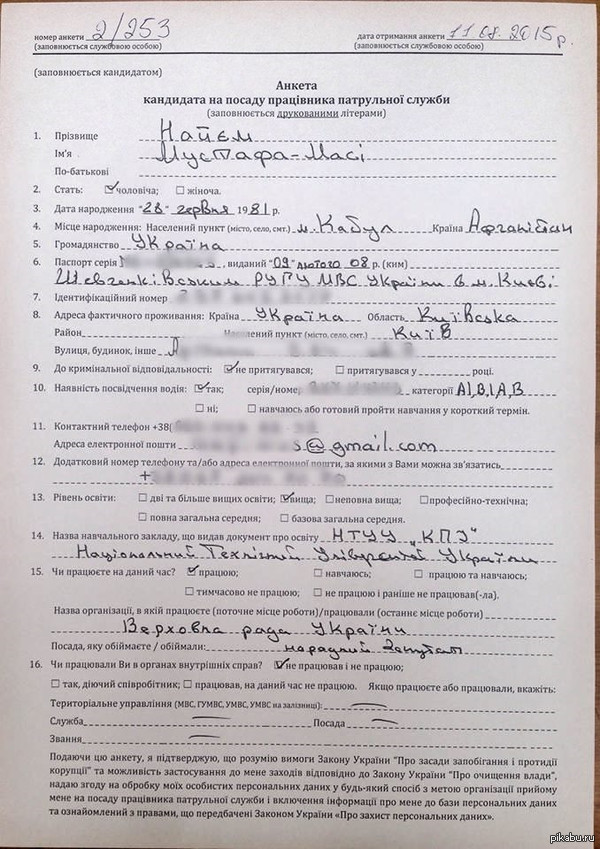 номер анкети 2/253 дата отримання анкети 11.08.2015 р.
(заповнюється службовою особою) (заповнюється службовою особою)
(заповнюється кандидатом)
Анкета
кандидата на посаду працівника патрульної служби
(заповнюється друкованими літерами)
1. Прізвище Найєм
Ім'я Мустафа-Масі
По-батькові
2. Стать: чоловіча; жіноча.
3. Дата народження "28" червня 1981 р.
4. Місце народження: Населений пункт (місто, село, смт.) м. Кабул Країна Афганістан
5. Громадянство Україна
6. Паспорт серія , виданий "09" лютого 08 р. (ким)
Шевченківським РУГУ МВС України в м. Києві
7. Ідентифікаційний номер
8. Адреса фактичного проживання: Країна Україна Область Київська
Район Населений пункт (місто, село, смт.) Київ
Вулиця, будинок, інше
9. До кримінальної відповідальності: не притягувався; притягувався у році.
10. Наявність посвідчення водія: так; серія/номер категорії А1, В1, А, В
ні; навчаюсь або готовий пройти навчання у короткий термін.
11. Контактний телефон +38(
Адреса електронної пошти s@gmail.com
12. Додатковий номер телефону та/або адреса електронної пошти, за якими з Вами можна зв'язатись
+
13. Рівень освіти: дві та більше вищих освіти; вища; неповна вища; професійно-технічна;
повна загальна середня; базова загальна середня.
14. Назва навчального закладу, що видав документ про освіту НТУУ „КПІ"
Національний Технічний Університет України
15. Чи працюєте на даний час? працюю; навчаюсь; працюю та навчаюсь;
тимчасово не працюю; не працюю і раніше не працював(-ла).
Назва організації, в якій працюєте (поточне місце роботи)/працювали (останнє місце роботи)
Верховна рада України
Посада, яку обіймаєте / обіймали: народний депутат
16. Чи працювали Ви в органах внутрішніх справ? не працював і не працюю;
так, діючий співробітник; працював, на даний час не працюю. Якщо працюєте або працювали, вкажіть:
Територіальне управління (МВС, ГУМВС, УМВС, УМВС на залізниці):
Служба Посада
Звання
Подаючи цю анкету, я підтверджую, що розумію вимоги Закону України "Про засади запобігання і протидії
корупції" та можливість застосування до мене заходів відповідно до Закону України "Про очищення влади",
надаю згоду на обробку моїх особистих персональних даних у будь-який спосіб з метою організації прийому
мене на посаду працівника патрульної служби і включення інформації про мене до бази персональних даних
та ознайомлений з правами, що передбачені Законом України «Про захист персональних даних».
pikabu.ru